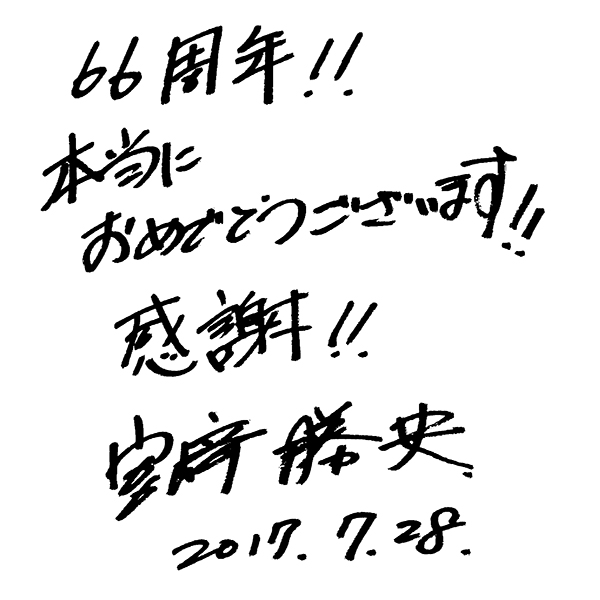 66周年!!
本当に
おめでとうございます!!
感謝!!
室﨑勝史
2017.7.28.